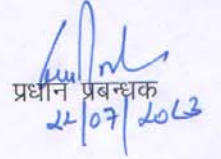 प्रधान प्रबन्धक
22/07/2023